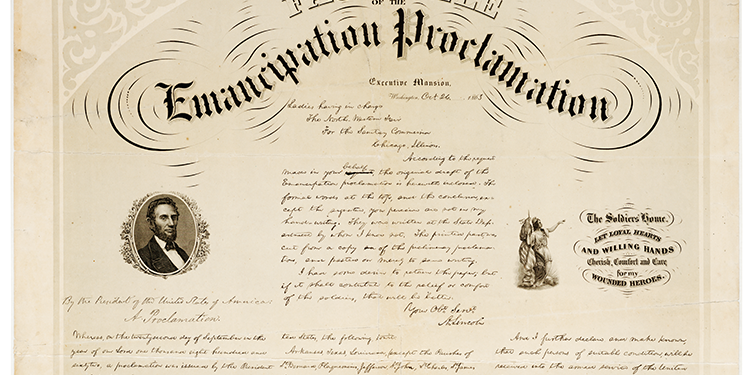 OF THE
Emancipation Proclamation
Executive Mansion,
Washington, Oct 26, 1863
Ladies having in charge
The North Western Fair
For the Sanitary Commission
Chicago, Illinois.
According to the request
made in your behalf, the original draft of the
Emancipation proclamation is herewith inclosed. The
formal words at the top, and the conclusion, ex-
cept the signature, you perceive are not in my
handwriting. They was written at the State Dep-
artment by whom I know not. The printed part was
cut from a copy of the preliminary proclama-
tion, and pasted on merely to save writing.
I had some desire to retain the paper; but
if it shall contribute to the relief or comfort
of the soldiers, that will be better.
Your Obt. Servt.
A. Lincoln
The Soldiers Home.
LET LOYAL HEARTS
AND WILLING HANDS
Cherish, Comfort and Care
for my
WOUNDED HEROES.
By the President of the United States of America:
A Proclamation.
Whereas, on the twenty second day of September in the
year of our Lord one thousand eight hundred and
sixty two, a proclamation was issued by the President
ted States, the following
Arkansas, Texas, Louisiana, (except the Parishes of
St. Bernard, Plaquemines, Jefferson, St. John, St. Charles, St. James
And I further declare and make known,
that such persons of suitable condition, will be
received into the armed service of the United